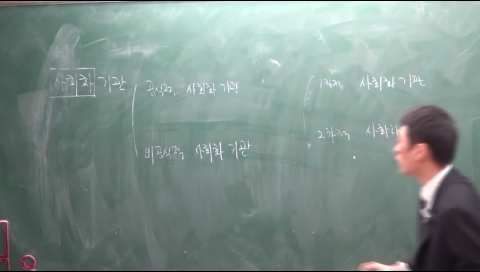 사회화 기관
공식적 사회화 기관
비공식적 사회화 기관
1차적 사회화 기관
2차적 사회화